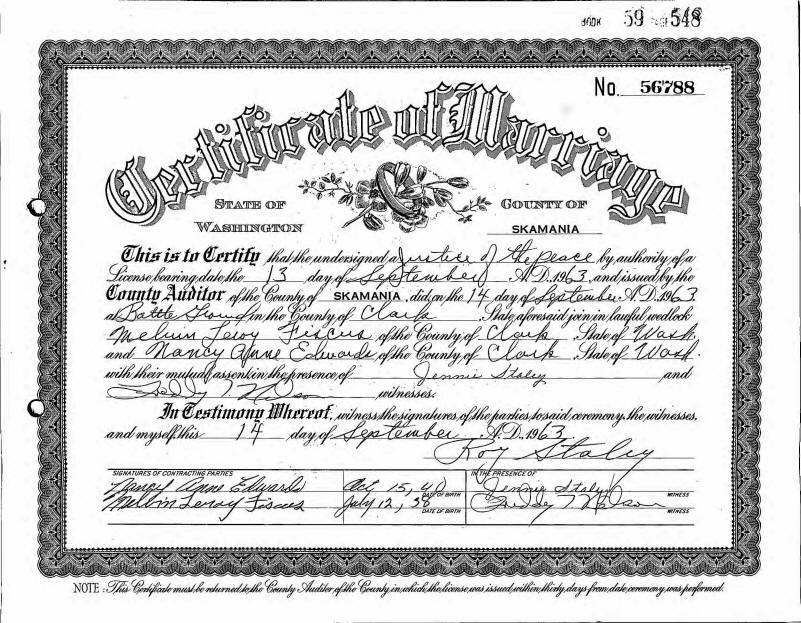 BOOK 59 548
No. 56788
Certificate of Marriage
STATE OF WASHINGTON
COUNTY OF SKAMANIA
This is to Certify that the undersigned a Justice of the peace by authority of a
License bearing date the 13 day of September A.D. 1963, and issued by the
County Auditor of the County of SKAMANIA, did on the 14 day of September A.D. 1963
at Battle Ground in the County of Clark State aforesaid join in lawful wedlock
Melvin Leroy Fiscus of the County of Clark State of Wash.
and Nancy Anne Edwards of the County of Clark State of Wash.
with their mutual assent in the presence of Jennie Staley and
Nelson witnesses.
In Testimony Whereof, witness the signatures of the parties to said ceremony, the witnesses,
and myself, this 14 day of September A.D. 1963
Roy Staley
SIGNATURES OF CONTRACTING PARTIES
IN THE PRESENCE OF
Nancy Anne Edwards Oct. 15, 40 DATE OF BIRTH Jennie Staley WITNESS
Melvin Leroy Fiscus July 12, 38 DATE OF BIRTH Nelson WITNESS
NOTE: This Certificate must be returned to the County Auditor of the County in which the license was issued within thirty days from date ceremony was performed.